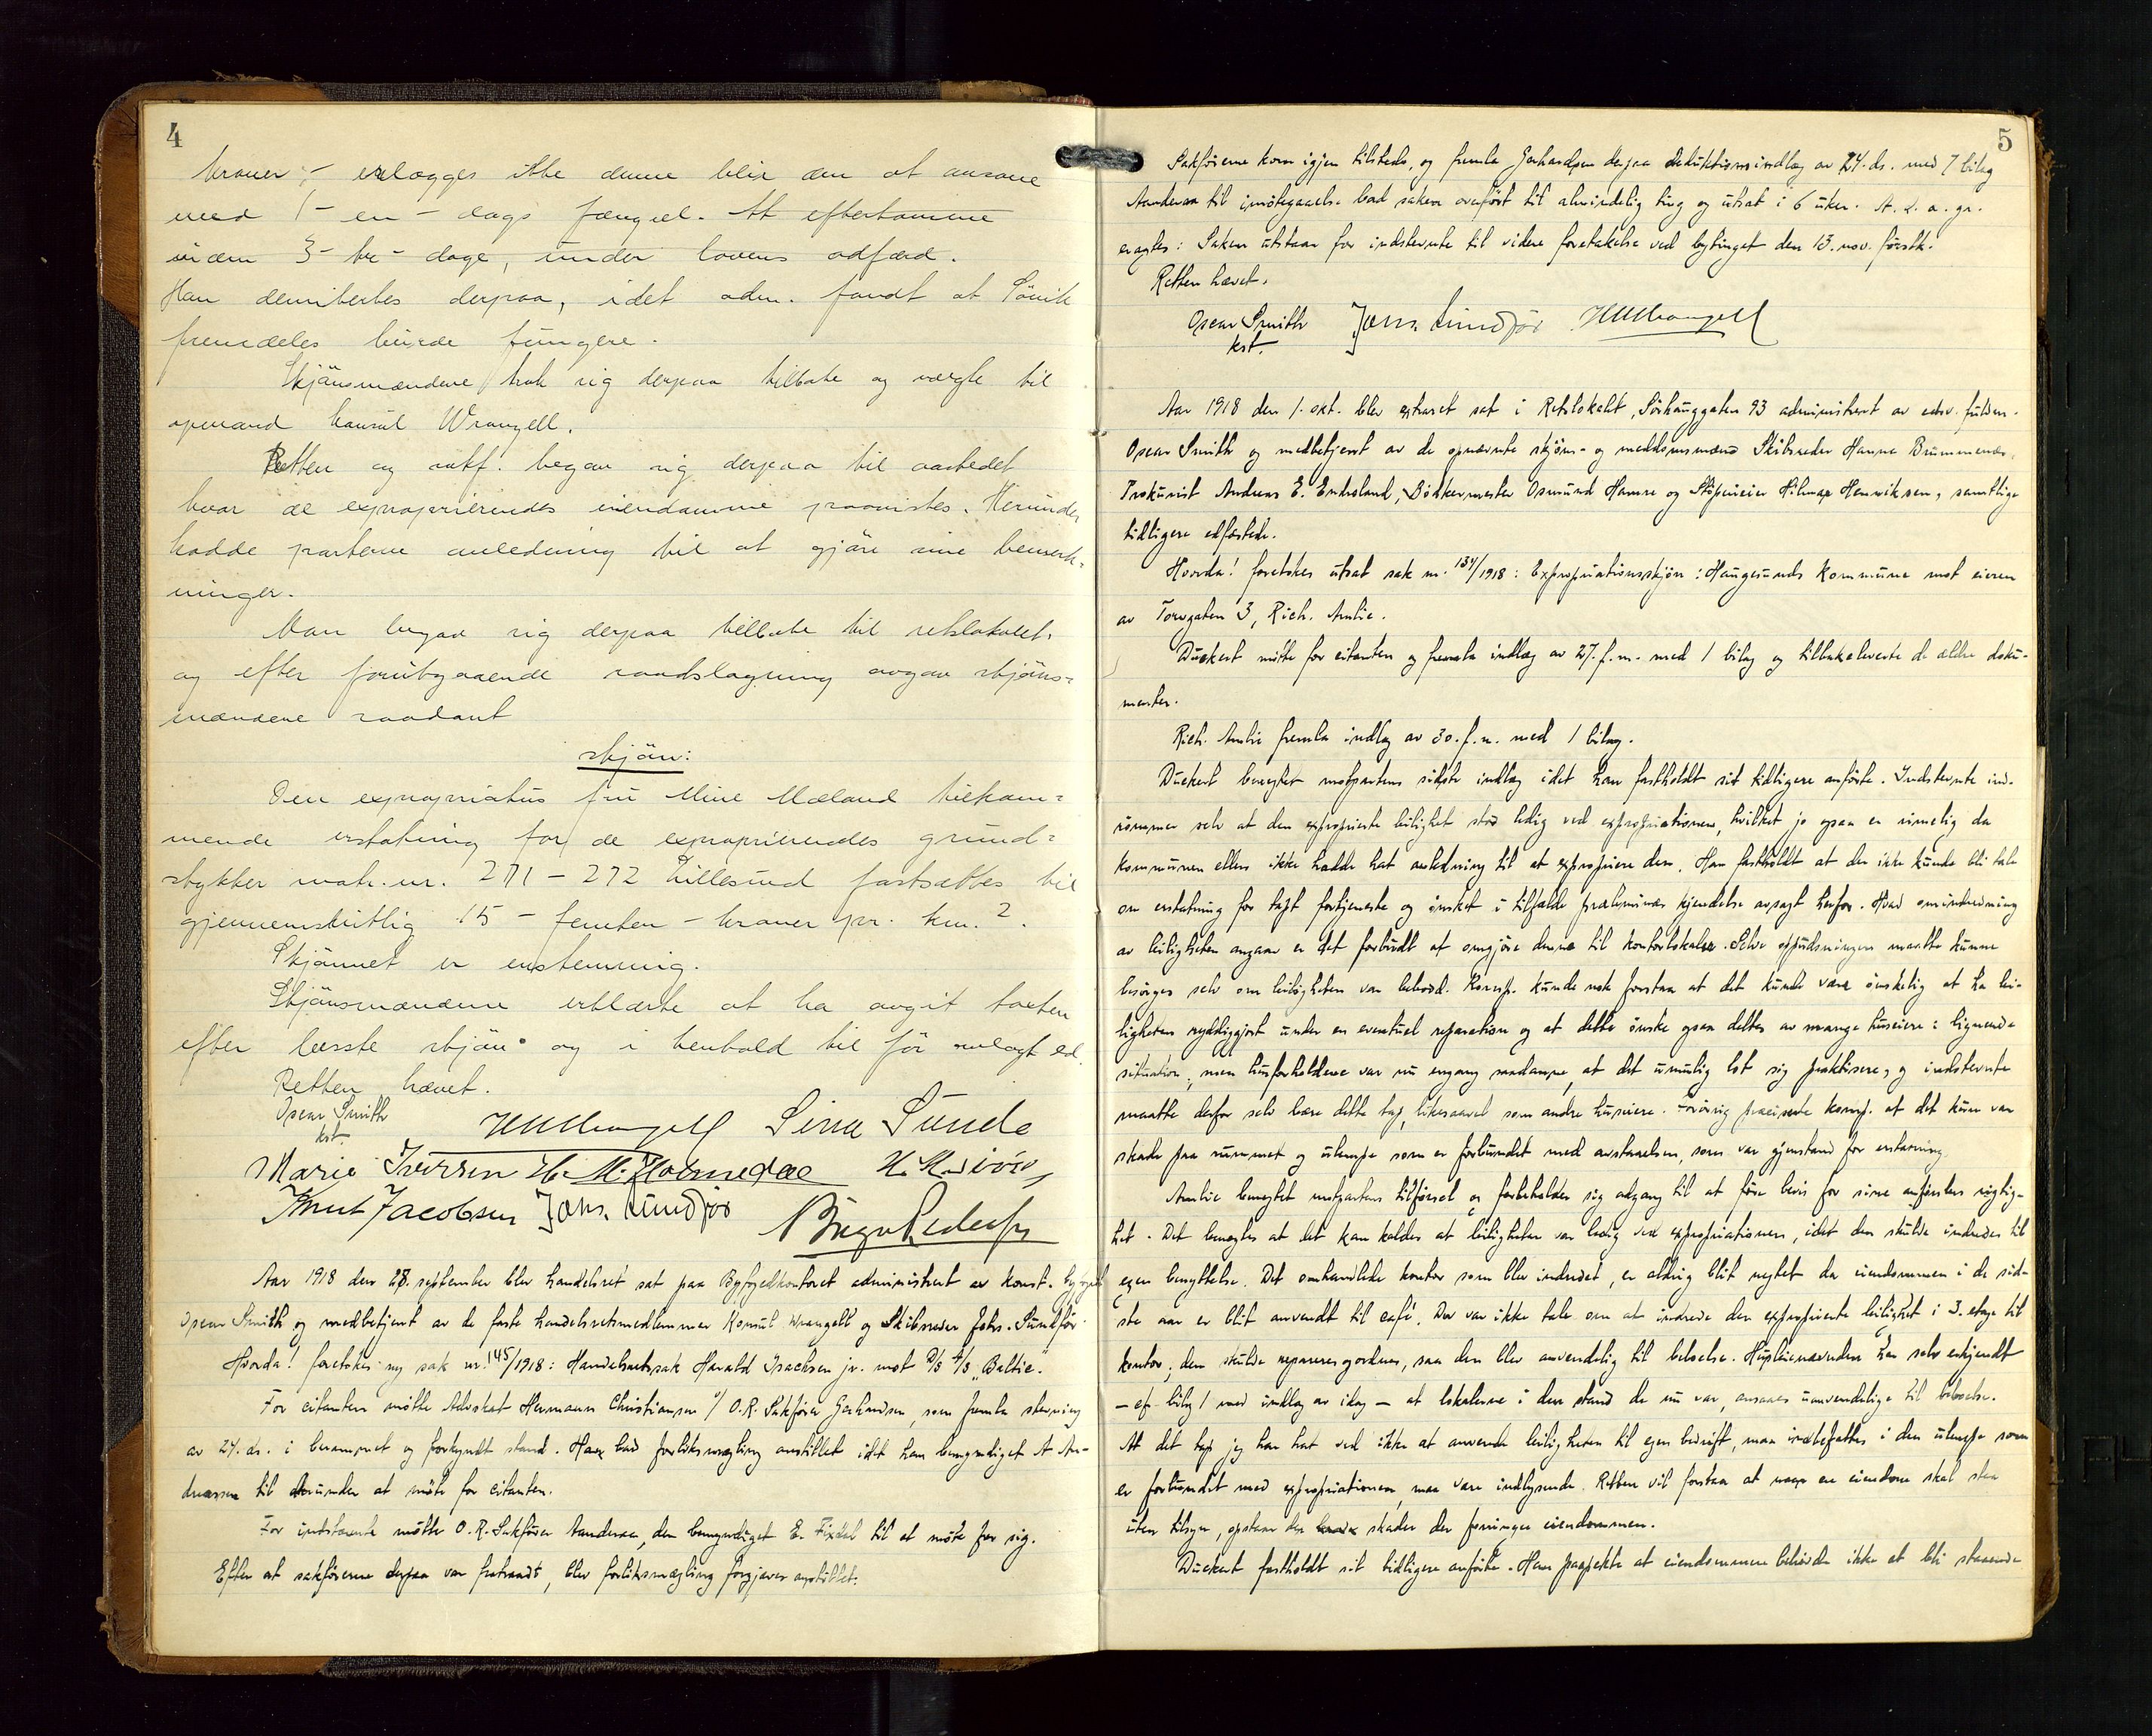 4
kroner; – erlægges ikke denne blir den at avsone
med 1 – en – dags fængsel. At efterkomme
inden 3 – tre – dage, under lovens adfærd.
Han demitertes derpaa, idet adm. fandt at Sönik
fremdeles burde fungere.
Skjönsmændene trak sig derpaa tilbake og valgte til
opmand konsul Wrangell.
Retten og sakf. begav sig derpaa til aastedet
hvor de exproprierendes eiendomme paavistes. Herunder
hadde parterne anledning til at gjöre sine bemerk-
ninger.
Man begav sig derpaa tilbake til retslokalet.
og efter forutgaaende raadslagning avgav skjöns-
mændene saadant
skjön:
Den expropriatus fru Mine Mæland tilkom-
mende erstatning for de exproprierendes grund-
stykker matr. nr. 271 – 272 Lillesund fastsættes til
gjennemsnitlig 15 – femten – kroner pr. km.².
Skjönnet er enstemmig.
Skjönsmændene erklærte at ha avgit taksten
efter bedste skjön og i henhold til för avlagt ed.
Retten hævet.
Oscar Smith
kst.
HMWrangell Sina Sunde
Marie Iversen M. Holmedal
Knut Jacobsen Johs. Sundför Birger Pedersen
Aar 1918 den 28. september blev handelsret sat paa Byfogedkontoret administrert av konst. byfoged
Oscar Smith og medbetjent av de faste handelsretsmedlemmer Konsul Wrangell og Skibsreder Johs. Sundför
Hvorda! foretokes ny sak nr. 145/1918: Handelsretssak Harald Isachsen jr. mot D/S A/S "Baltic".
For citanten mötte Advokat Hermann Christiansen v/ O.R. Sakförer Gerhardsen, som fremla stevning
av 24. ds. i berammet og forkyndt stand. Han bad forliksmægling anstillet idet han bemyndiget A. An-
dreassen til derunder at möte for citanten.
For indstevnte mötte O.R. Sakförer Aanderaa, der bemyndiget E. Fixdal til at möte for sig.
Efter at sakförerne derpaa var fratraadt, blev forliksmægling forgjæves anstillet.
5
Sakförerne kom igjen tilstede, og fremla Gerhardsen derpaa deduktionsindlæg av 24. ds. med 7 bilag
Aanderaa til imötegaaelse bad saken overfört til almindelig ting og utsat i 6 uker. A. d. a. gr.
eragtes: Saken utstaar for indstevnte til videre foretakelse ved bytinget den 13. nov. förstk.
Retten hævet.
Oscar Smith Johs. Sundför HMWrangell
kst.
Aar 1918 den 1. okt. blev extraret sat i Retslokalet, Sörhauggaten 93 administrert av edsv. fuldm.
Oscar Smith og medbetjent av de opnævnte skjöns- og meddomsmænd Skibsreder Hanna Brummenæs,
Prokurist Andreas E. Endresland, Bödkermester Osmund Hamre og Stöperieier Hilmar Henriksen, samtlige
tidligere edfæstede.
Hvorda! foretokes utsat sak nr. 134/1918: Expropriationsskjön: Haugesunds kommune mot eieren
av Torvgaten 3, Rich. Amlie.
Duckert mötte for citanten og fremla indlæg av 27. f.m. med 1 bilag og tilbakeleverte de ældre doku-
menter.
Rich. Amlie fremla indlæg av 30. f.m. med 1 bilag.
Duckert benegtet motpartens sidste indlæg idet han fastholdt sit tidligere anförte. Indstevnte ind-
römmer selv at den exproprierte leilighet stod ledig ved expropriationen, hvilket jo ogsaa er rimelig da
kommunen ellers ikke hadde hat anledning til at expropriere den. Han fastholdt at der ikke kunde bli tale
om erstatning for tapt fortjeneste og önsket i tilfælde præliminær kjendelse avsagt herfor. Hvad omindredning
av leiligheten angaar er det forbudt at omgjöre denne til kontorlokaler. Selve oppudsningen maatte kunne
besörges selv om leiligheten var beboed. Komp. kunde nok forstaa at det kunde være önskelig at ha lei-
ligheten ryddiggjort under en eventuel reparation og at dette önske ogsaa deltes av mange huseiere i lignende
situation; men husforholdene var nu engang saadanne, at det umulig lot sig praktisere, og indstevnte
maatte derfor selv bære dette tap, likesaavel som andre huseiere. Forövrig præciserte komp. at det kun var
skade paa rummet og ulempe som er forbundet med avstaaelsen, som var gjenstand for erstatning.
Amlie benegtet motpartens tilförsel og forbeholder sig adgang til at före bevis for sine anförslers rigtig-
het. Det benegtes at det kan kaldes at leiligheten var ledig ved expropriationen, idet den skulde indredes til
egen benyttelse. Det omhandlede kontor som blev indredet, er aldrig blit negtet da eiendommen i de sid-
ste aar er blit anvendt til café. Der var ikke tale om at indrede den exproprierte leilighet i 3. etage til
kontor; den skulde repareres og ordnes, saa den blev anvendelig til beboelse. Husleienævnden har selv erkjendt
– cf. bilag 1 med indlæg av idag – at lokalerne i den stand de nu var, ansaaes uanvendelige til beboelse.
At det tap jeg har hat ved ikke at anvende leiligheten til egen bedrift, maa indbefattes i den ulempe som
er forbundet med expropriationen, maa være indlysende. Retten vil forstaa at naar en eiendom skal staa
uten tilsyn, opstaar der skader der forringer eiendommen.
Duckert fastholdt sit tidligere anförte. Han paapekte at eiendommen behövde ikke at bli staaende